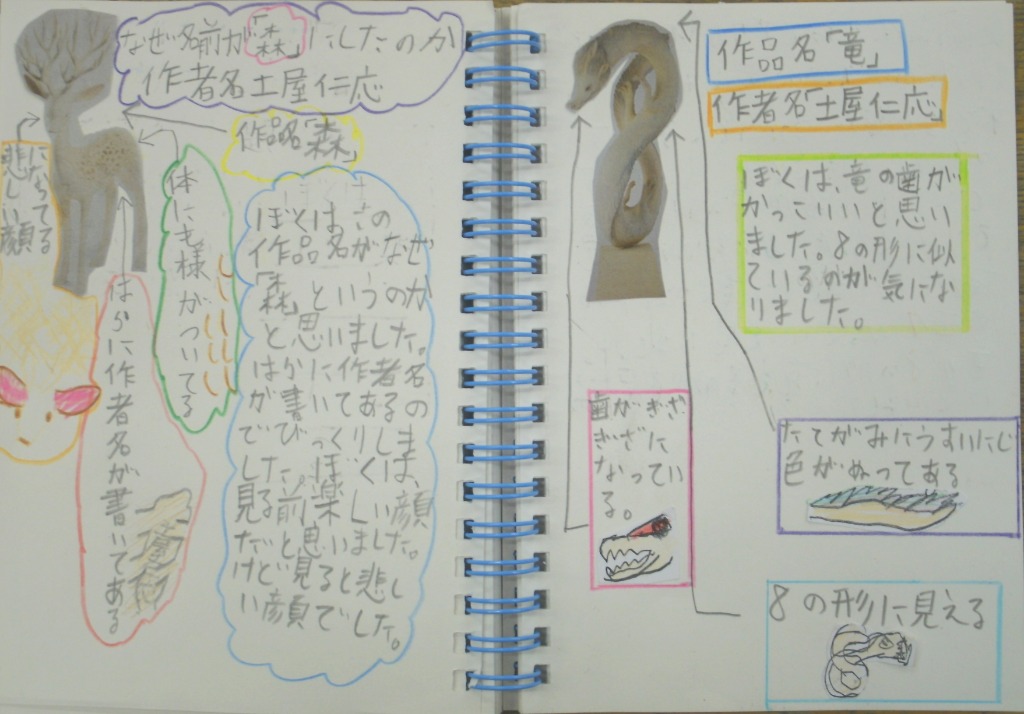 なぜ名前が「森」にしたのか
作者名土屋仁応
作品名「森」
悲しい顔
になってる
体にも様がついてる
はらに作者名が書いてある
ぼくはさの
作品名がなぜ
「森」というのか
と思いました。
はらに作者名
が書いてあるの
でびっくりしま
した。ぼくは、
見る前楽しい顔
だと思いました。
けど見ると悲し
い顔でした。
作品名「竜」
作者名「土屋仁応」
ぼくは、竜の歯が
かっこいいと思い
ました。8の形に似
ているのが気にな
りました。
歯がぎざ
ぎざに
なってい
る。
たてがみにうすいにじ
色がぬってある
8の形に見える